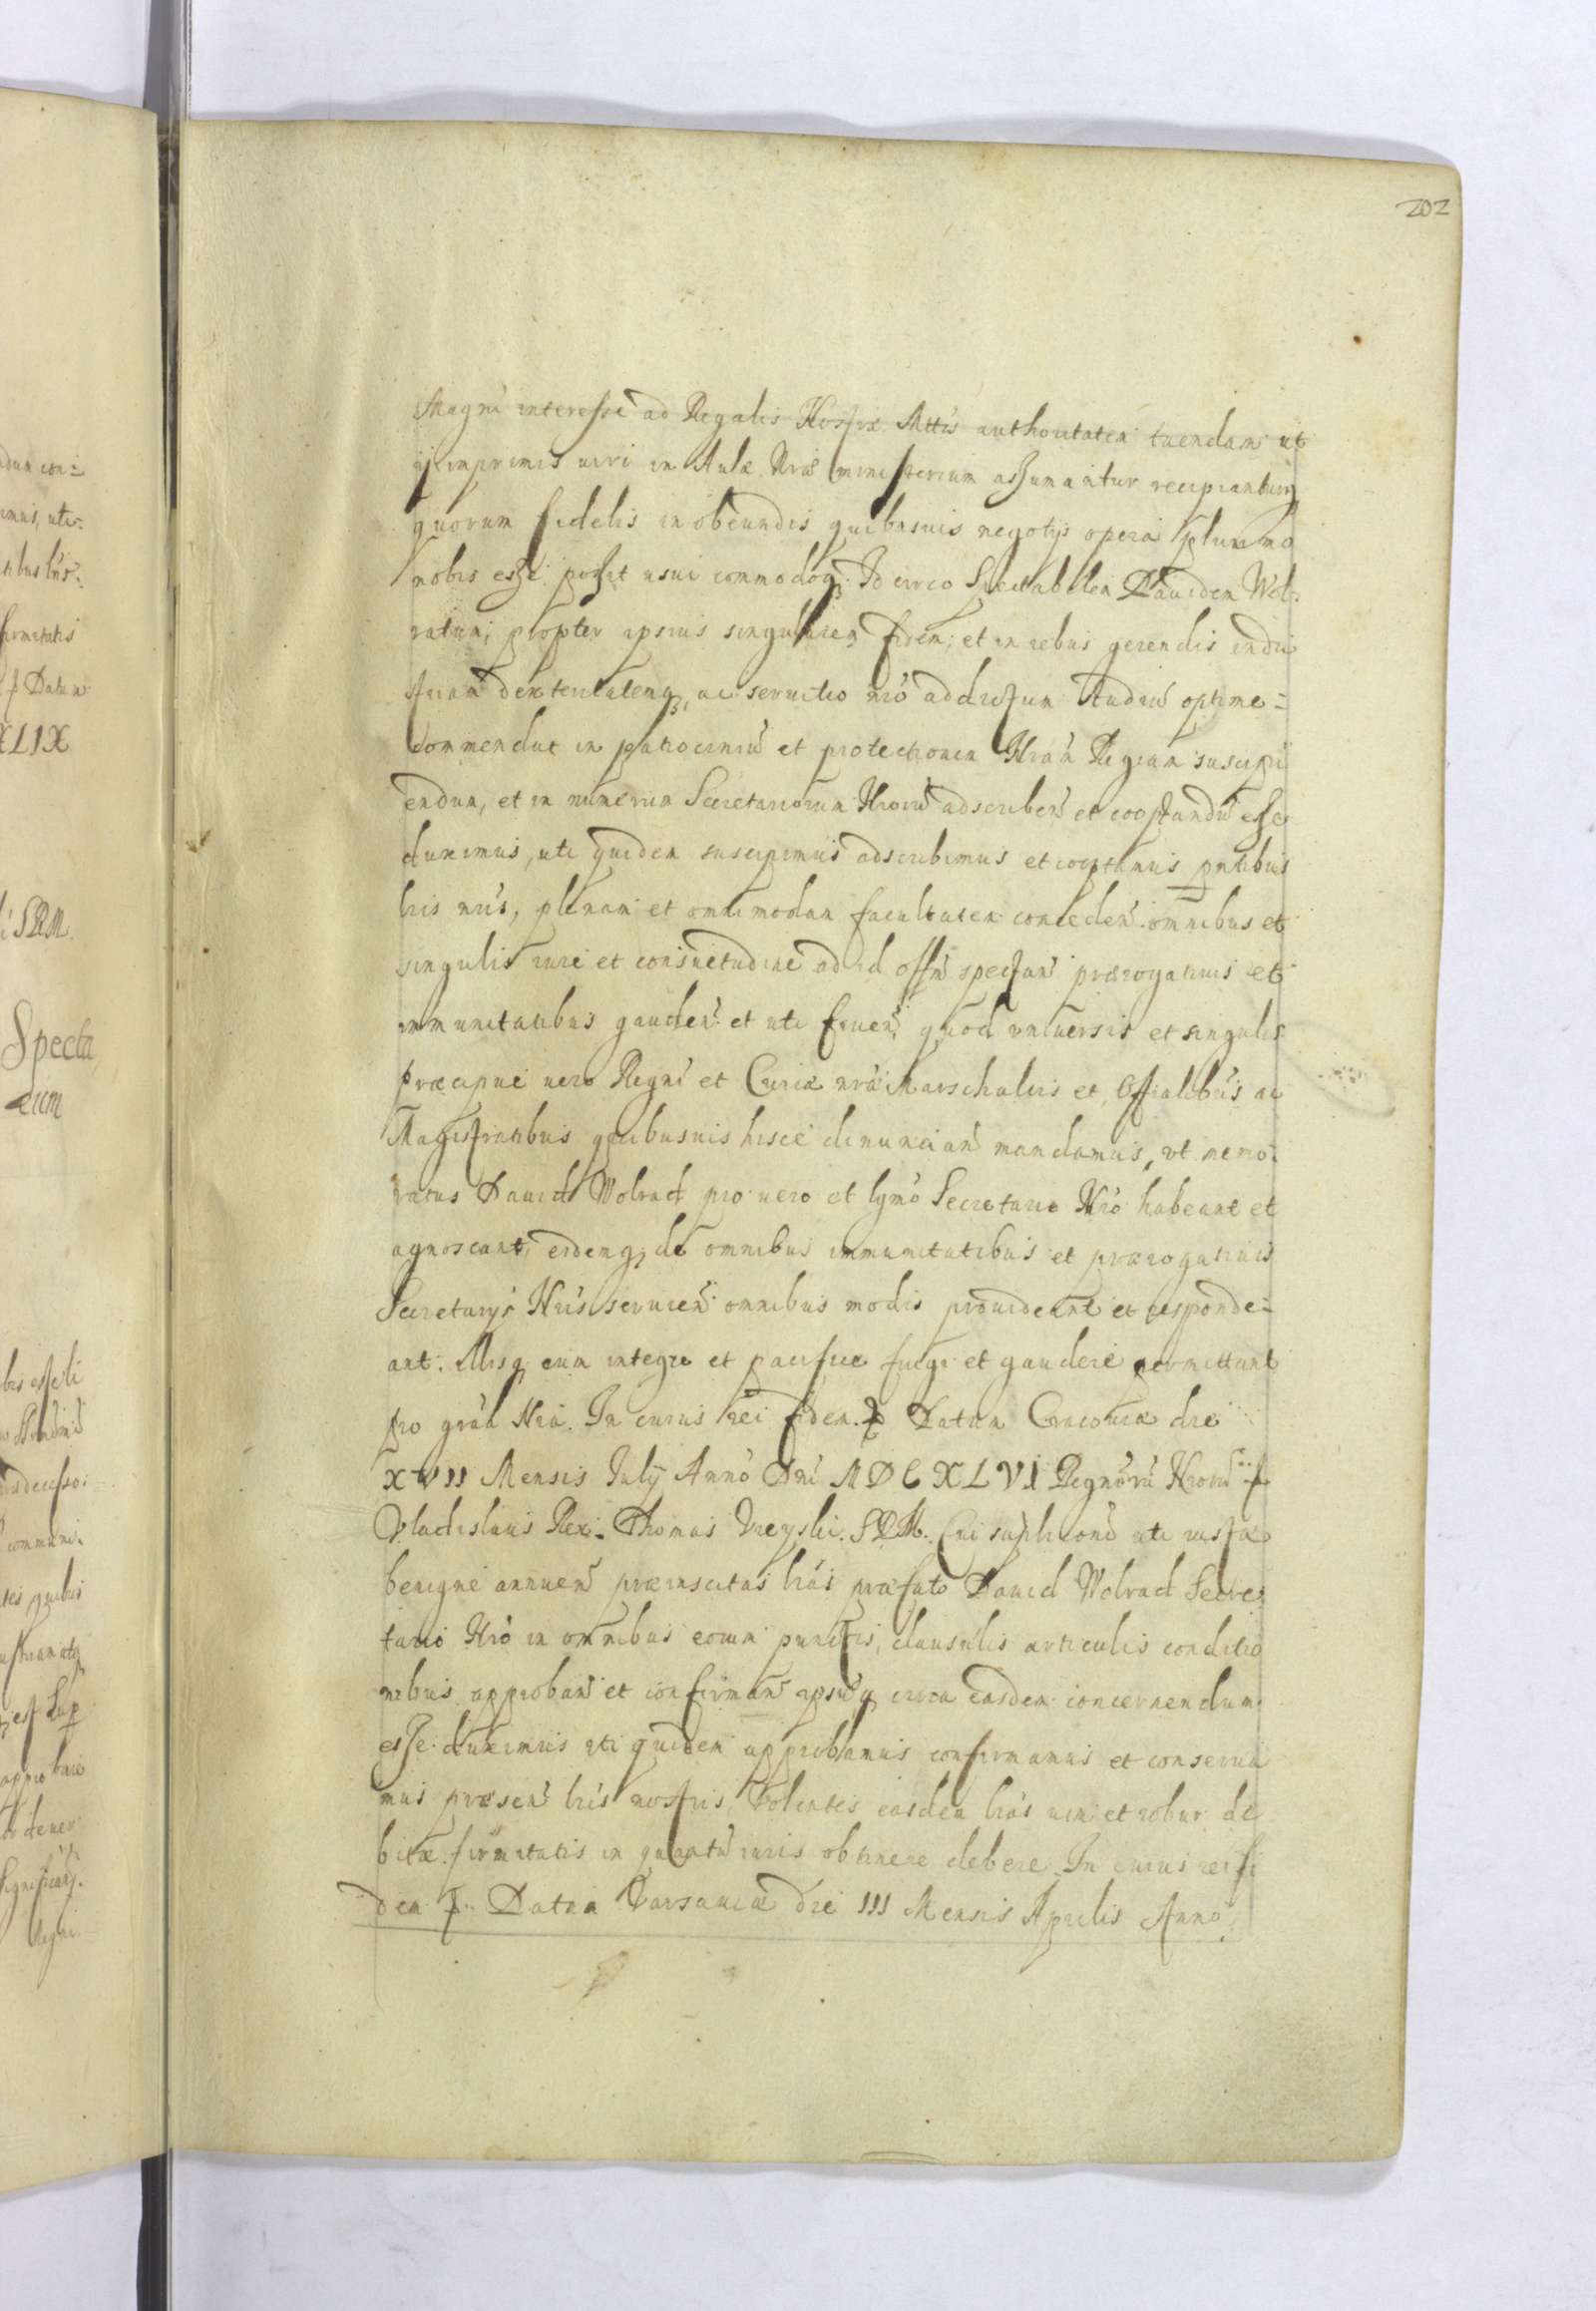 202
Magni interesse ad Regalis Nostræ Mttis authoritatem tuendam ut
ij imprimis uiri in Aulæ Nræ ministerium assumantur recipianturq
quorum fidelis in obeundis quibusuis negotijs opera plurimo
nobis esse possit usui commodoq. Id circo Spectabilem Dauidem Wol:
ratum, propter ipsius singularem fidem, et in rebus gerendis indu
striam dexteritatemq, ac seruitio nro addictum studiu optime =
commendat in patrociniu et protectionem Nram Regiam suscipi
endum, et in numerum Secretariorum Nroru adscriben et cooptandu esse
duximus, uti quidem suscipimus adscribimus et cooptamus pntibus
lris nris, plenam et omnimodam facultatem conceden omnibus et
singulis iure et consuetudine ad id offm spectan prærogatiuis et
immunitatibus gauden et uti fruen, quod uniuersis et singulis
præcipue uero Regni et Curiæ nræ Marschalcis et Offialibus ac
Magistratibus quibusuis hisce denuncian mandamus, ut memo:
ratum Dauid Wolrad pro uero et lgmo Secretario Nro habeant et
agnoscant, eidemq de omnibus immunitatibus et prærogatiuis
Secretarijs Nris seruien omnibus modis prouideant et responde=
ant. illisq eum integre et pacifice frui et gaudere permittant
pro gratia Nra. In cuius rei fidem. Datum Cracouiæ die
XVII Mensis Julij Anno Dni MDCXLVI Regnoru Nroru
Vladislaus Rex. Thomas Vieyski. S.R.M. Cui suplicaoni uti iustæ
benigne annuen præinsertas lras præfato Dauid Wolrad Secre
tario Nro in omnibus eorum punctis, clausulis articulis conditio
nibus approban et confirman ipsuq circa easdem concernendum
esse duximus uti quidem approbamus confirmamus et conserua
mus præsen lris nostris, Volentes easdem lras uim et robur de
bitæ firmitatis in quantu iuris obtinere debere. In cuius rei fi
dem Datum Varsauiæ die III Mensis Aprilis Anno